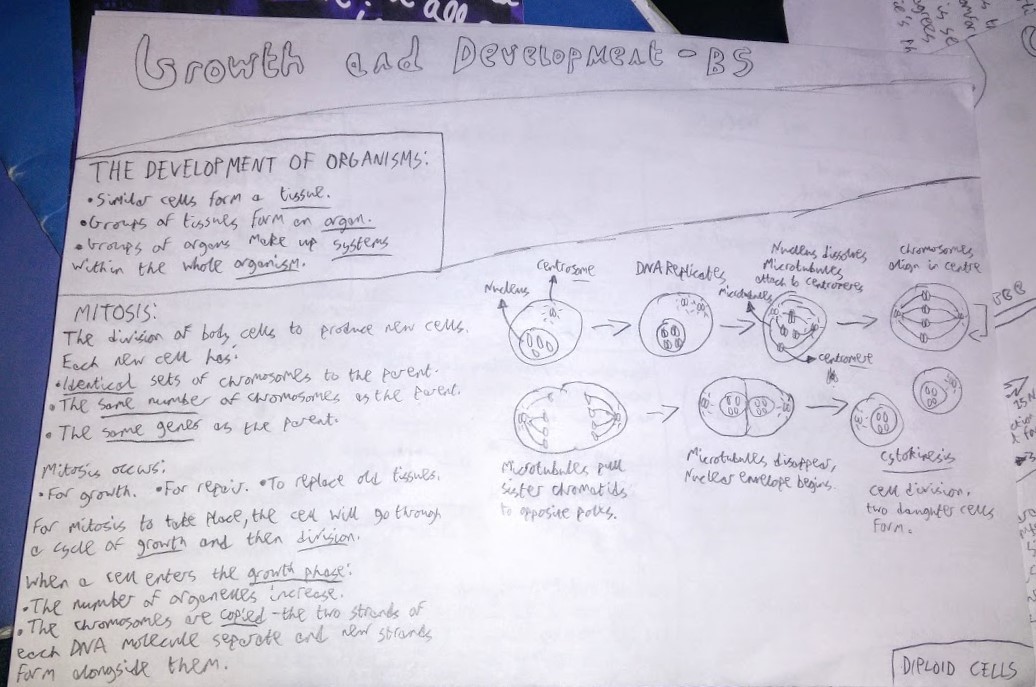 all
Growth and Development - B5
THE DEVELOPMENT OF ORGANISMS:
• Similar cells form a tissue.
• Groups of tissues form an organ.
• Groups of organs make up systems
within the whole organism.
MITOSIS:
The division of body cells to produce new cells.
Each new cell has:
• Identical sets of chromosomes to the parent.
• The same number of chromosomes as the parent.
• The same genes as the parent.
Mitosis occurs:
• For growth. • For repair. • To replace old tissues.
For mitosis to take place, the cell will go through
a cycle of growth and then division.
When a cell enters the growth phase:
• The number of organelles increase.
• The chromosomes are copied - the two strands of
each DNA molecule separate and new strands
form alongside them.
Nucleus
Centrosome
DNA Replicates
Nucleus dissolves
Microtubules
attach to centromeres
Microtubules
centromere
Chromosomes
align in centre
Microtubules pull
sister chromatids
to opposite poles.
Microtubules disappear,
Nuclear envelope begins.
Cytokinesis
Cell division,
two daughter cells
form.
DIPLOID CELLS